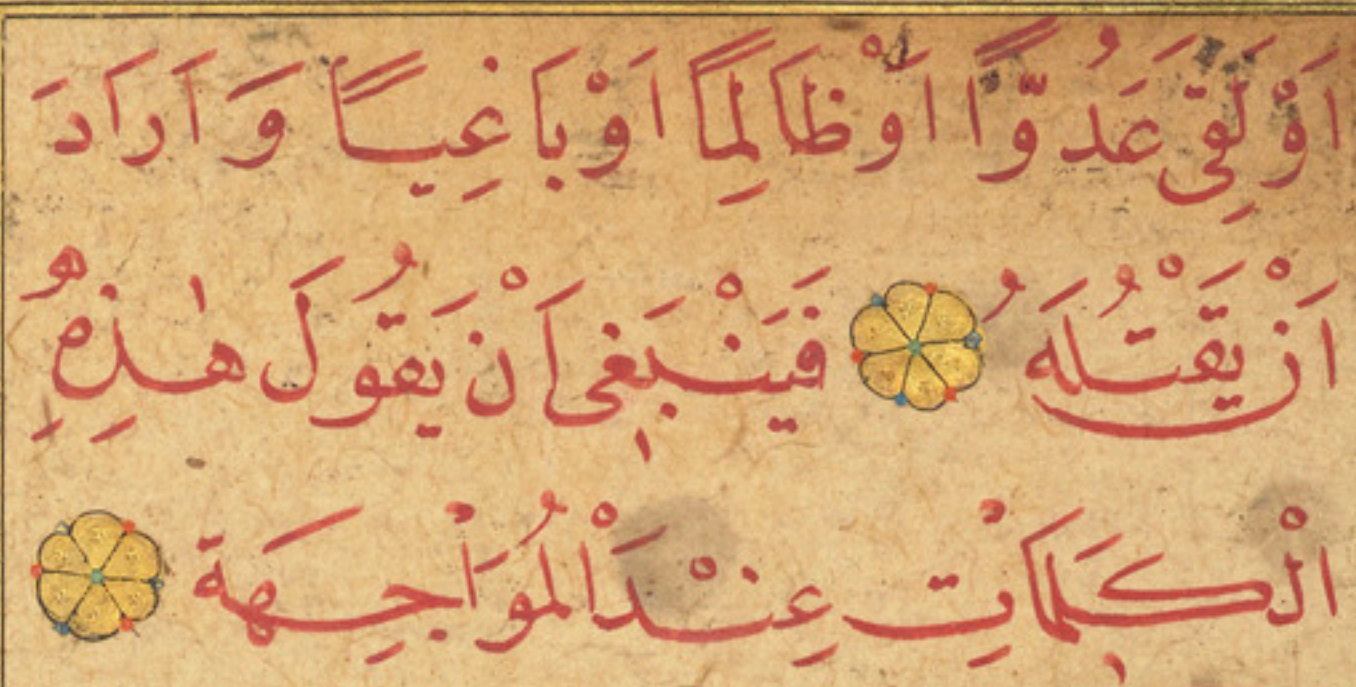 اَوْ لَقِیَ عَدُوًّا اَوْ ظَالِمًا اَوْ بَاغِيًا وَ اَرَادَ
اَنْ يَقْتُلَهُ فَيَنْبَغِى اَنْ يَقُولَ هٰذِهِ
الْكَلِمَاتِ عِنْدَ الْمُوَاجِهَة